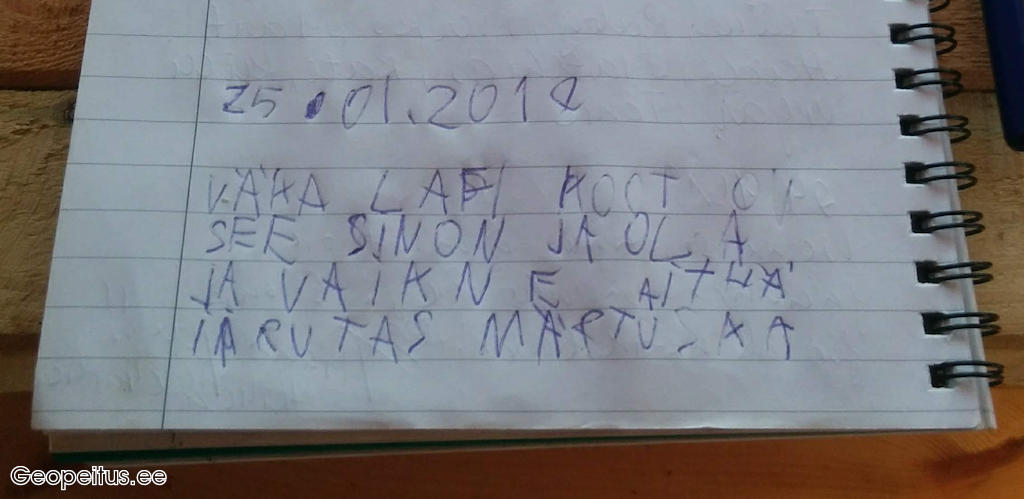 25.01.2018
VÄKA LAEI KOCT O
SEE SINON JA OLA
JA VAIKN E AITHÄ
IÄRUTAS MÄRTUSKA
Geopeitus.ee